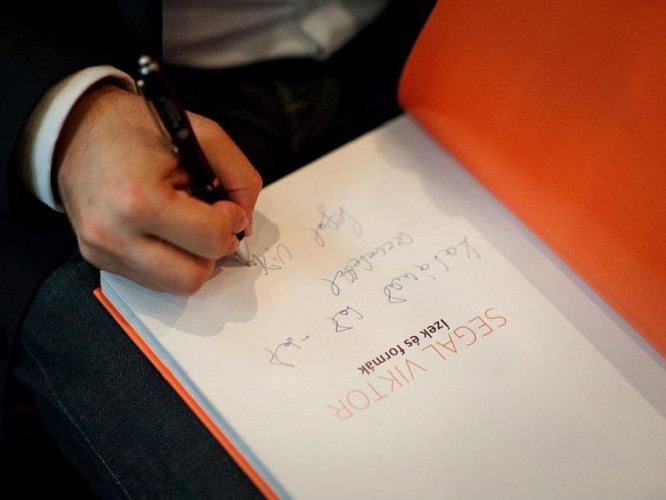 SEGAL VIKTOR
Ízek és formák
Katának
szeretettel
Segal
Vikt